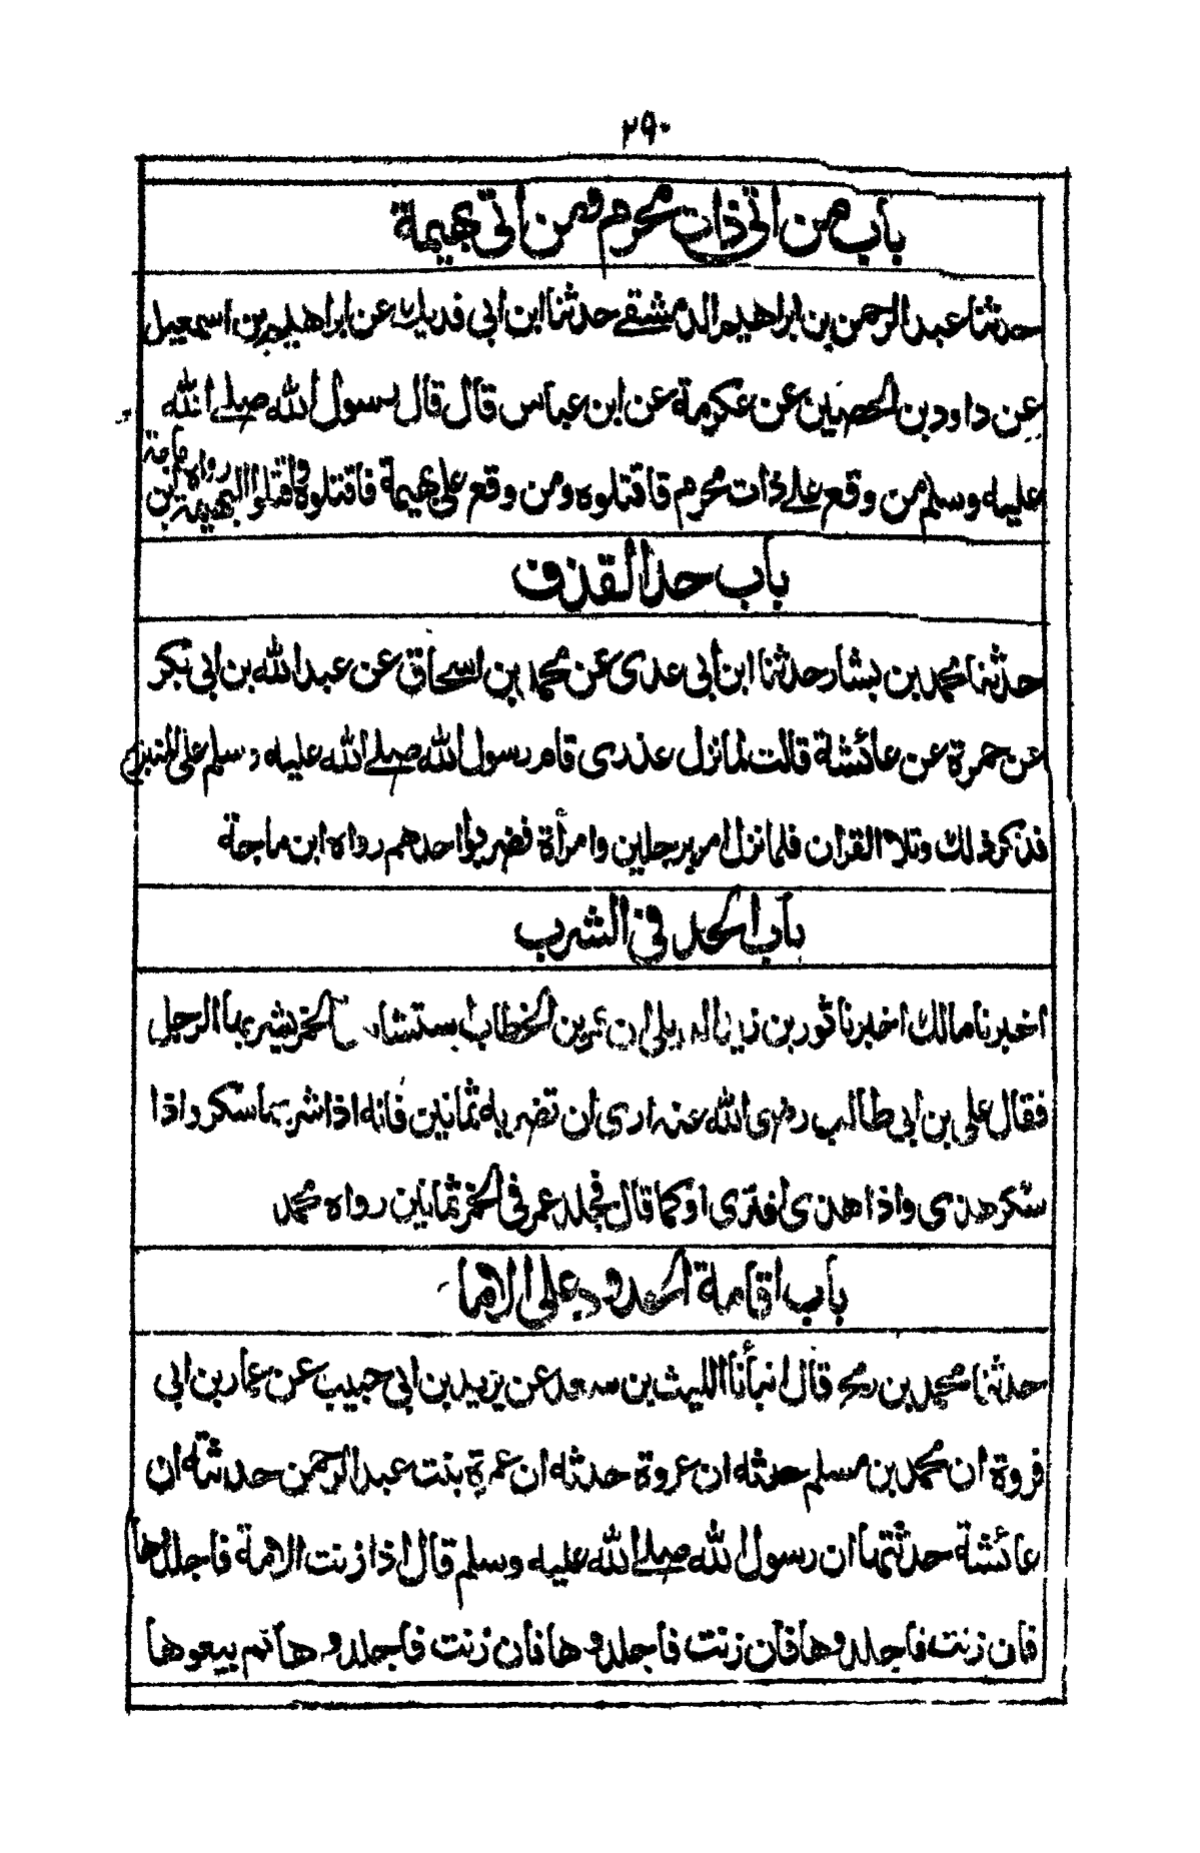 ٢٩٠
باب من اتى ذات محرم ومن اتى بهيمة
حدثنا عبد الرحمن بن ابراهيم الدمشقے حدثنا ابن ابي فديك عن ابراهيم بن اسمعيل
عن داود بن الحصين عن عكرمة عن ابن عباس قال قال رسول الله صلے الله
عليه وسلم من وقع علے ذات محرم فاقتلوه ومن وقع على بهيمة فاقتلوه واقتلوا البهيمة رواه ابن ماجة
باب حد القذف
حدثنا محمد بن بشار حدثنا ابن ابي عدى عن محمد بن اسحاق عن عبد الله بن ابي بكر
عن حمرة عن عائشة قالت لما نزل عذرى قام رسول الله صلے الله عليه وسلم على المنبر
فذكر ذلك وتلا القران فلما نزل امر برجلين وامرأة فضربوا حدهم رواه ابن ماجة
باب الحد في الشرب
اخبرنا مالك اخبرنا ثور بن زيد الديلي ان عمر بن الخطاب استشار في الخمر يشربها الرجل
فقال علي بن ابي طالب رضى الله عنه ارى ان تضربه ثمانين فانه اذا شربها سكر واذا
سكر هذى واذا هذى افترى او كما قال فجلد عمر في الخمر ثمانين رواه محمد
باب اقامة الحدود على الاماء
حدثنا محمد بن رمح قال انبأنا الليث بن سعد عن يزيد بن ابي حبيب عن عمار بن ابي
فروة ان محمد بن مسلم حدثه ان عروة حدثه ان عمرة بنت عبد الرحمن حدثته ان
عائشة حدثتها ان رسول الله صلے الله عليه وسلم قال اذا زنت الامة فاجلدوها
فان زنت فاجلدوها فان زنت فاجلدوها فان زنت فاجلدوها ثم بيعوها